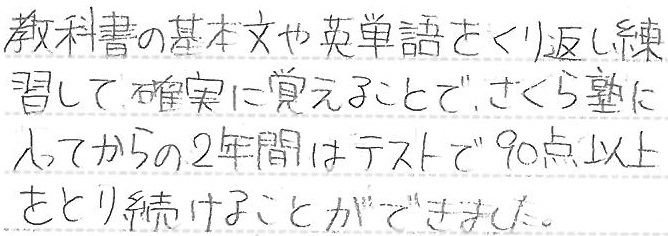 教科書の基本文や英単語をくり返し練
習して確実に覚えることで、さくら塾に
入ってからの2年間はテストで90点以上
をとり続けることができました。